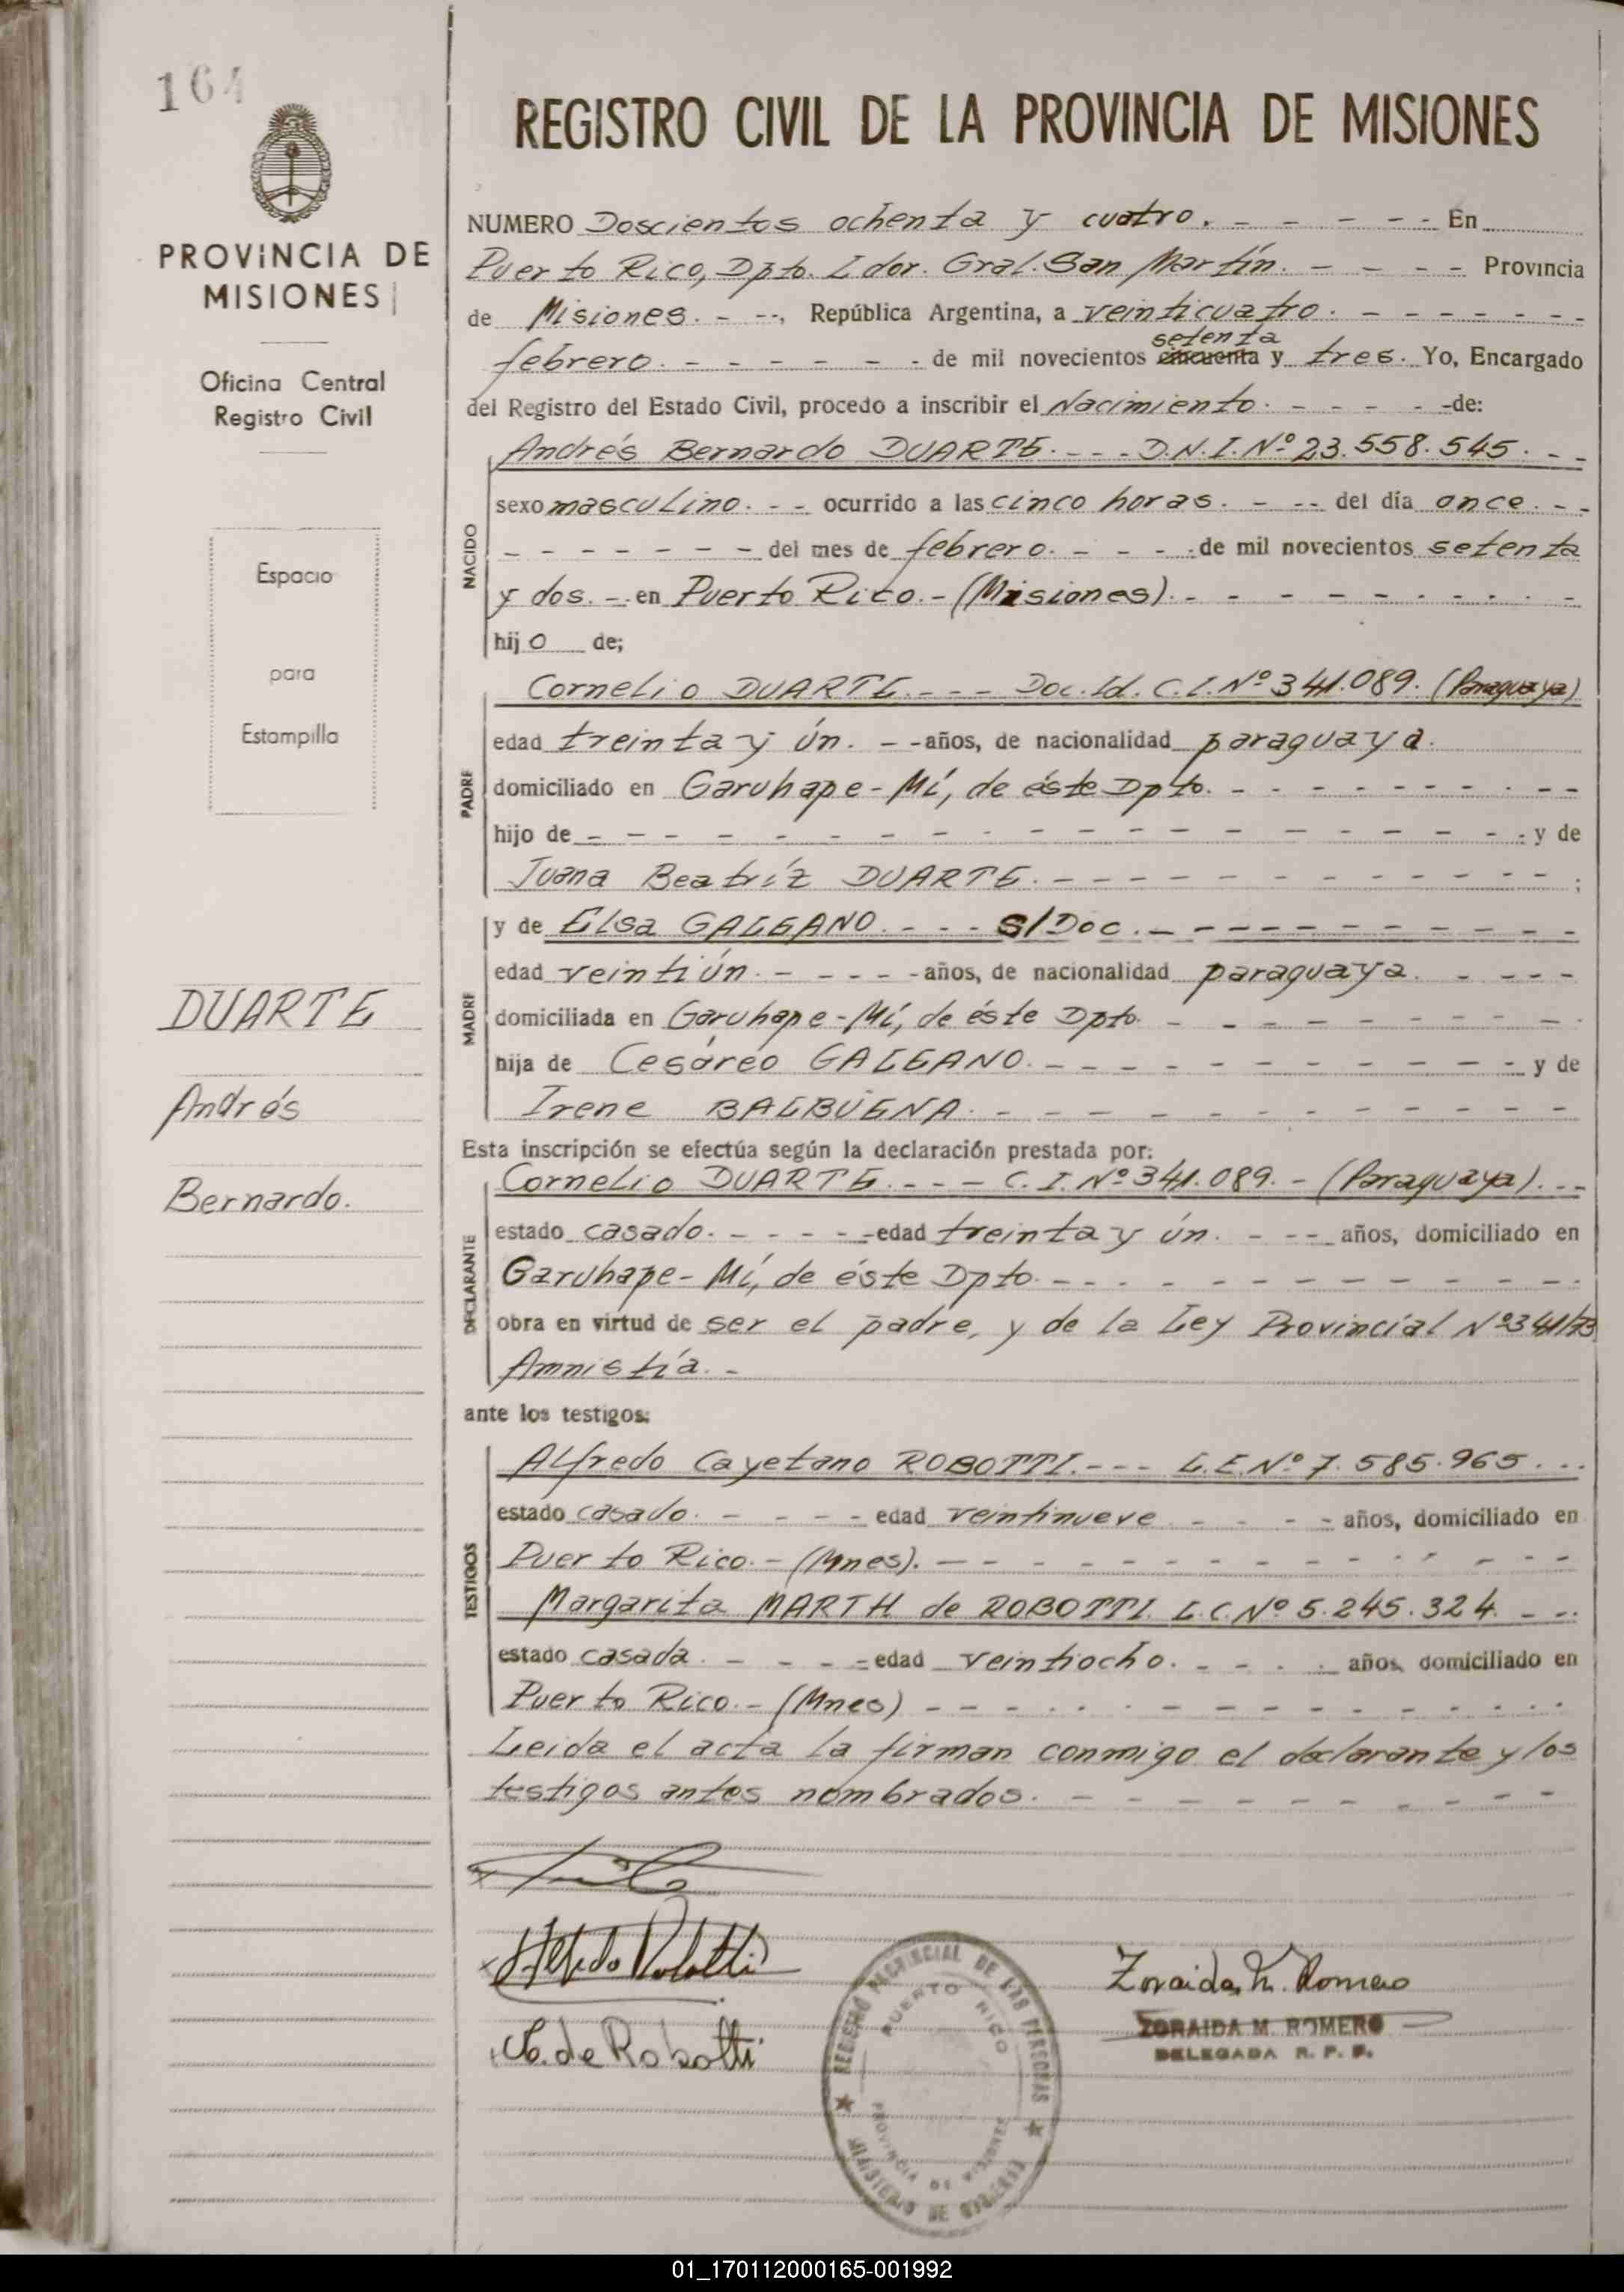 164
PROVINCIA DE
MISIONES
Oficina Central
Registro Civil
Espacio
para
Estampilla
DUARTE
Andrés
Bernardo.
REGISTRO CIVIL DE LA PROVINCIA DE MISIONES
NUMERO Doscientos ochenta y cuatro. - - - - - En
Puerto Rico, Dpto. Ldor. Gral. San Martín. - - - - Provincia
de Misiones. - --, República Argentina, a veinticuatro. - - - - - - -
setenta
febrero. - - - - - - de mil novecientos cincuenta y tres. Yo, Encargado
del Registro del Estado Civil, procedo a inscribir el Nacimiento. - - - - -de:
NACIDO
Andrés Bernardo DUARTE. - - - D.N.I. Nº 23.558.545. - -
sexo masculino. - - ocurrido a las cinco horas. - -- del día once. - -
- - - - - - - del mes de febrero. - - - de mil novecientos setenta
y dos. - en Puerto Rico. - (Misiones). - - - - - - - - - -
hijo de;
PADRE
Cornelio DUARTE. - - - Doc. Id. C.I. Nº 341.089. (Paraguaya)
edad treinta y ún. - - años, de nacionalidad paraguaya.
domiciliado en Garuhape-Mí, de éste Dpto. - - - - - - - - - -
hijo de - - - - - - - - - - - - - - - - y de
Juana Beatríz DUARTE. - - - - - - - - - - - - ;
MADRE
y de Elsa GALEANO. - - - S/Doc. - - - - - - - - - - -
edad veintiún. - - - - - años, de nacionalidad paraguaya. - - - -
domiciliada en Garuhape-Mí, de éste Dpto. - - - - - - - - - -
hija de Cesáreo GALEANO. - - - - - - - - - - - y de
Irene BALBUENA. - - - - - - - - - - - - -
Esta inscripción se efectúa según la declaración prestada por:
DECLARANTE
Cornelio DUARTE. - - - C. I. Nº 341.089. - (Paraguaya). - -
estado casado. - - - - - edad treinta y ún. - - - - años, domiciliado en
Garuhape-Mí, de éste Dpto. - - - - - - - - - - - -
obra en virtud de ser el padre, y de la Ley Provincial Nº 341/73
Amnistía. -
ante los testigos:
TESTIGOS
Alfredo Cayetano ROBOTTI. - - - L.E. Nº 7.585.965. - -
estado casado. - - - - edad veintinueve - - - - años, domiciliado en
Puerto Rico. - (Mnes). - - - - - - - - - - - - - -
Margarita MARTH de ROBOTTI. L.C. Nº 5.245.324. - - -
estado casada. - - - - edad veintiocho. - - - - años, domiciliado en
Puerto Rico. - (Mnes) - - - - - - - - - - - - -
Leida el acta la firman conmigo el declarante y los
testigos antes nombrados. - - - - - - - - - -
Alfredo Robotti
de Robotti
Zoraida M. Romero
ZORAIDA M. ROMERO
DELEGADA R. P. P.
REGISTRO PROVINCIAL DE LAS PERSONAS
PUERTO RICO
PROVINCIA DE MISIONES
MINISTERIO DE GOBIERNO
01_170112000165-001992